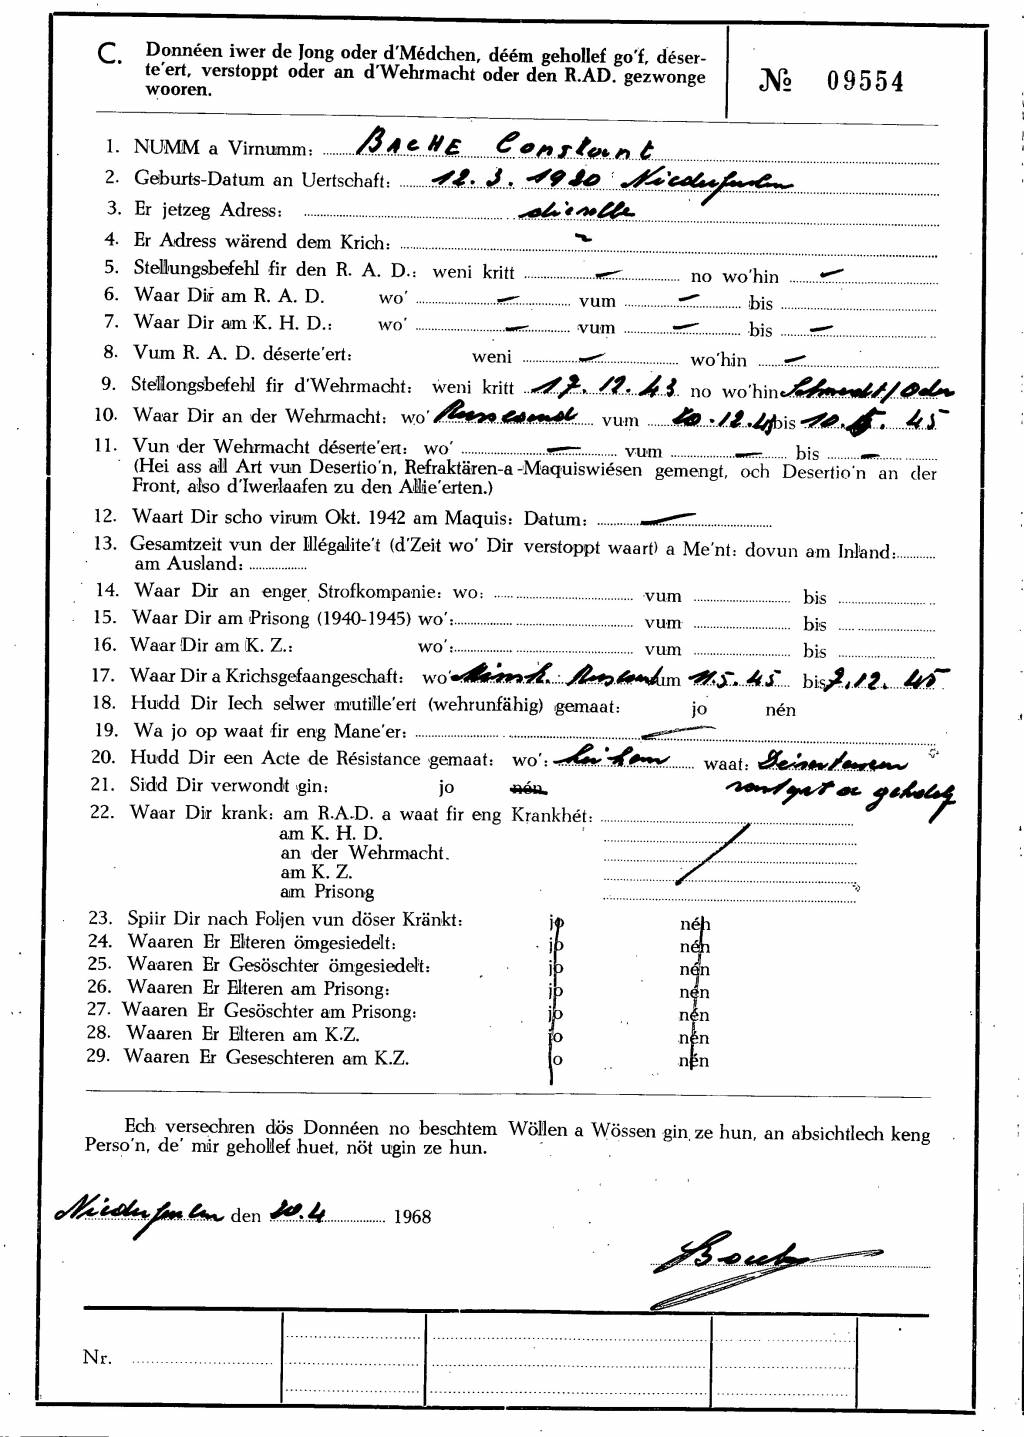 C. Donnéen iwer de Jong oder d'Médchen, déém gehollef go'f, déser-
te'ert, verstoppt oder an d'Wehrmacht oder den R.AD. gezwonge
wooren.
№ 09554
1. NUMM a Virnumm: BACHE Constant
2. Geburts-Datum an Uertschaft: 12.3.1920
3. Er jetzeg Adress: dieselbe
4. Er Adress wärend dem Krich:
5. Stellungsbefehl fir den R. A. D.: weni kritt — no wo'hin —
6. Waar Dir am R. A. D. wo' — vum — bis
7. Waar Dir am K. H. D.: wo' — vum — bis —
8. Vum R. A. D. déserte'ert: weni — wo'hin —
9. Stellongsbefehl fir d'Wehrmacht: weni kritt 17.12.43 no wo'hin Schwedt/Oder
10. Waar Dir an der Wehrmacht: wo' Russland vum bis 45
11. Vun der Wehrmacht déserte'ert: wo' — vum — bis —
(Hei ass all Art vun Desertio'n, Refraktären-a-Maquiswiésen gemengt, och Desertio'n an der
Front, also d'Iwerlaafen zu den Allie'erten.)
12. Waart Dir scho virum Okt. 1942 am Maquis: Datum: —
13. Gesamtzeit vun der Illégalite't (d'Zeit wo' Dir verstoppt waart) a Me'nt: dovun am Inland:
am Ausland:
14. Waar Dir an enger Strofkompanie: wo: vum bis
15. Waar Dir am Prisong (1940-1945) wo': vum bis
16. Waar Dir am K. Z.: wo': vum bis
17. Waar Dir a Krichsgefaangeschaft: wo' Minsk. Russland vum 11.5.45 bis 7.12.45
18. Hudd Dir Iech selwer mutille'ert (wehrunfähig) gemaat: jo nén
19. Wa jo op waat fir eng Mane'er: —
20. Hudd Dir een Acte de Résistance gemaat: wo': waat:
21. Sidd Dir verwondt gin: jo nén
22. Waar Dir krank: am R.A.D. a waat fir eng Krankhét:
am K. H. D.
an der Wehrmacht.
am K. Z.
am Prisong
23. Spiir Dir nach Foljen vun döser Kränkt: jo nén
24. Waaren Er Elteren ömgesiedelt: jo nén
25. Waaren Er Gesöschter ömgesiedelt: jo nén
26. Waaren Er Elteren am Prisong: jo nén
27. Waaren Er Gesöschter am Prisong: jo nén
28. Waaren Er Elteren am K.Z. jo nén
29. Waaren Er Geseschteren am K.Z. jo nén
Ech versechren dös Donnéen no beschtem Wöllen a Wössen gin ze hun, an absichtlech keng
Perso'n, de' mir gehollef huet, nöt ugin ze hun.
den 20.4 1968
Nr.